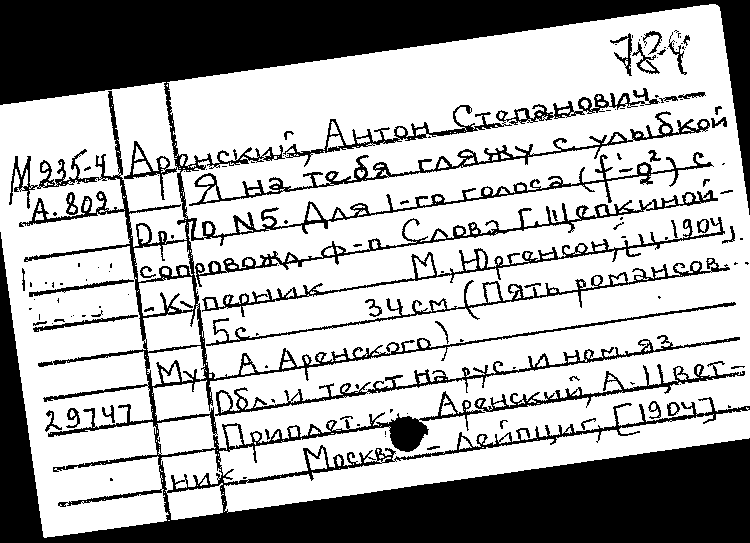 784
М 935-4 Аренский, Антон Степанович.
А. 802. Я на тебя гляжу с улыбкой
Op. 70, N5. Для 1-го голоса (f'-g²) с
сопровожд. ф-п. Слова Г. Щепкиной-
-Куперник М., Юргенсон, ц. 1904,
5с. 34 см. (Пять романсов...
Муз. А. Аренского).
Обл. и текст на рус. и нем. яз
29747 Приплет. к: Аренский, А. Цвет-
ник. Москва - Лейпциг, [1904]